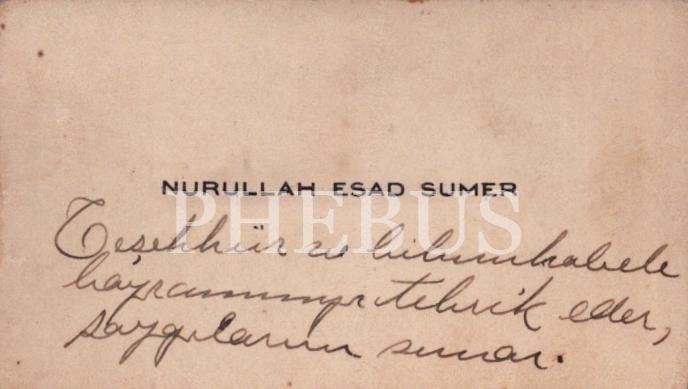 NURULLAH ESAD SUMER
PHEBUS
Teşekkür ve bilmukabele
bayramınızı tebrik eder,
saygılarımı sunar.